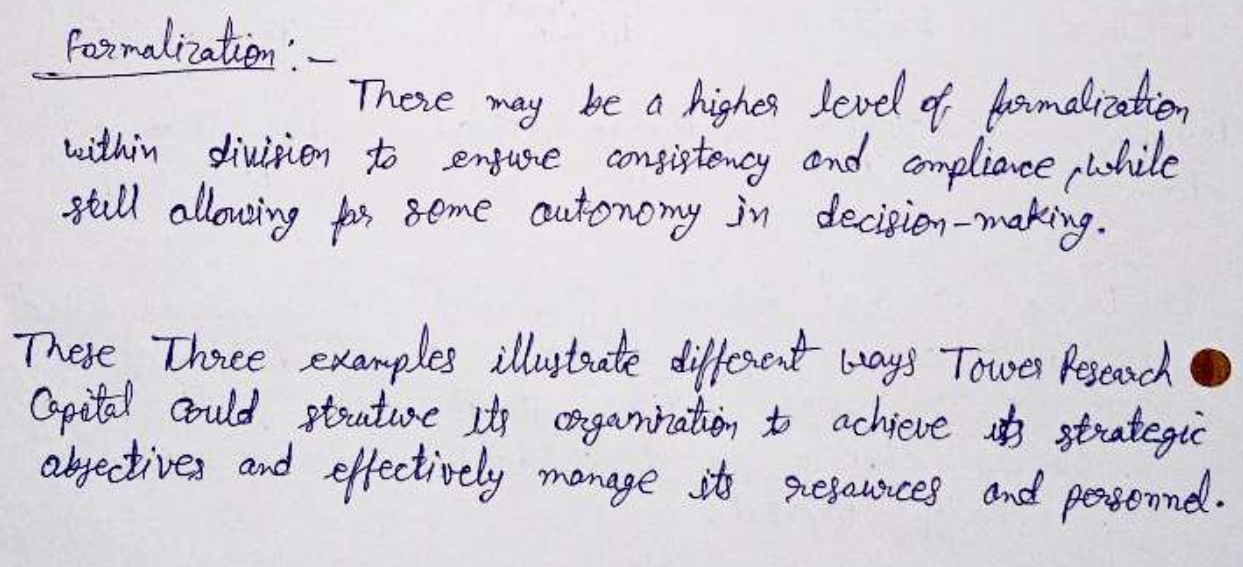 Formalization:-
There may be a higher level of formalization
within division to ensure consistency and compliance, while
still allowing for some autonomy in decision-making.
These Three examples illustrate different ways Tower Research
Capital could struture its organization to achieve its strategic
objectives and effectively manage its resources and personnel.